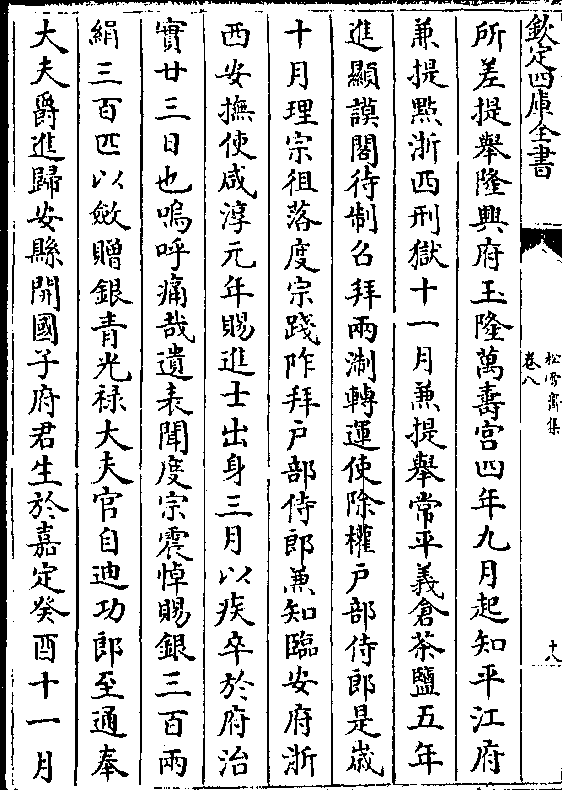 欽定四庫全書
松雪齋集
卷八
十八
所差提舉隆興府玉隆萬壽宮四年九月起知平江府
兼提點浙西刑獄十一月兼提舉常平義倉茶鹽五年
進顯謨閣待制召拜兩浙轉運使除權戶部侍郎是嵗
十月理宗徂落度宗踐阼拜戶部侍郎兼知臨安府浙
西安撫使咸淳元年賜進士出身三月以疾卒於府治
實廿三日也嗚呼痛哉遺表聞度宗震悼賜銀三百兩
絹三百匹以斂贈銀青光祿大夫官自迪功郎至通奉
大夫爵進歸安縣開國子府君生於嘉定癸酉十一月